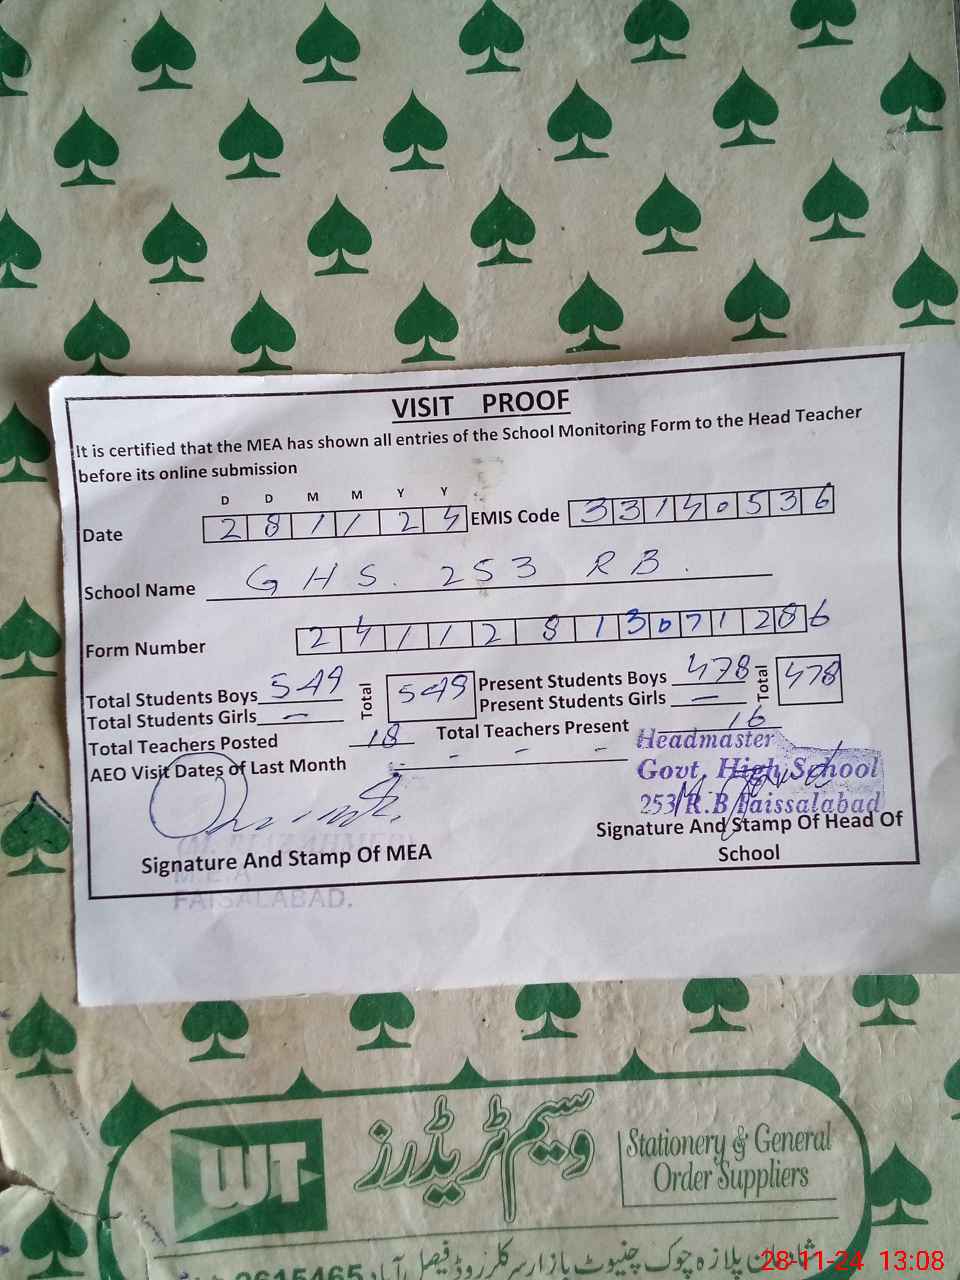 VISIT PROOF
It is certified that the MEA has shown all entries of the School Monitoring Form to the Head Teacher
before its online submission
D D M M Y Y
Date 2 8 1 1 2 4 EMIS Code 3 3 1 4 0 5 3 6
School Name G H S. 253 R B.
Form Number 2 4 1 1 2 8 1 3 0 7 1 2 8 6
Total Students Boys 549 Total 549 Present Students Boys 478 Total 478
Total Students Girls — Present Students Girls —
Total Teachers Posted 18 Total Teachers Present 16
AEO Visit Dates of Last Month - - - -
Headmaster
Govt. High School
253/R.B Faissalabad
Signature And Stamp Of MEA
Signature And Stamp Of Head Of
School
M.E.A
FAISALABAD.
WT
وسیم ٹریڈرز
Stationery & General
Order Suppliers
پلازہ چوک چنیوٹ بازار سرکلر روڈ فیصل آباد
2615465
28-11-24 13:08